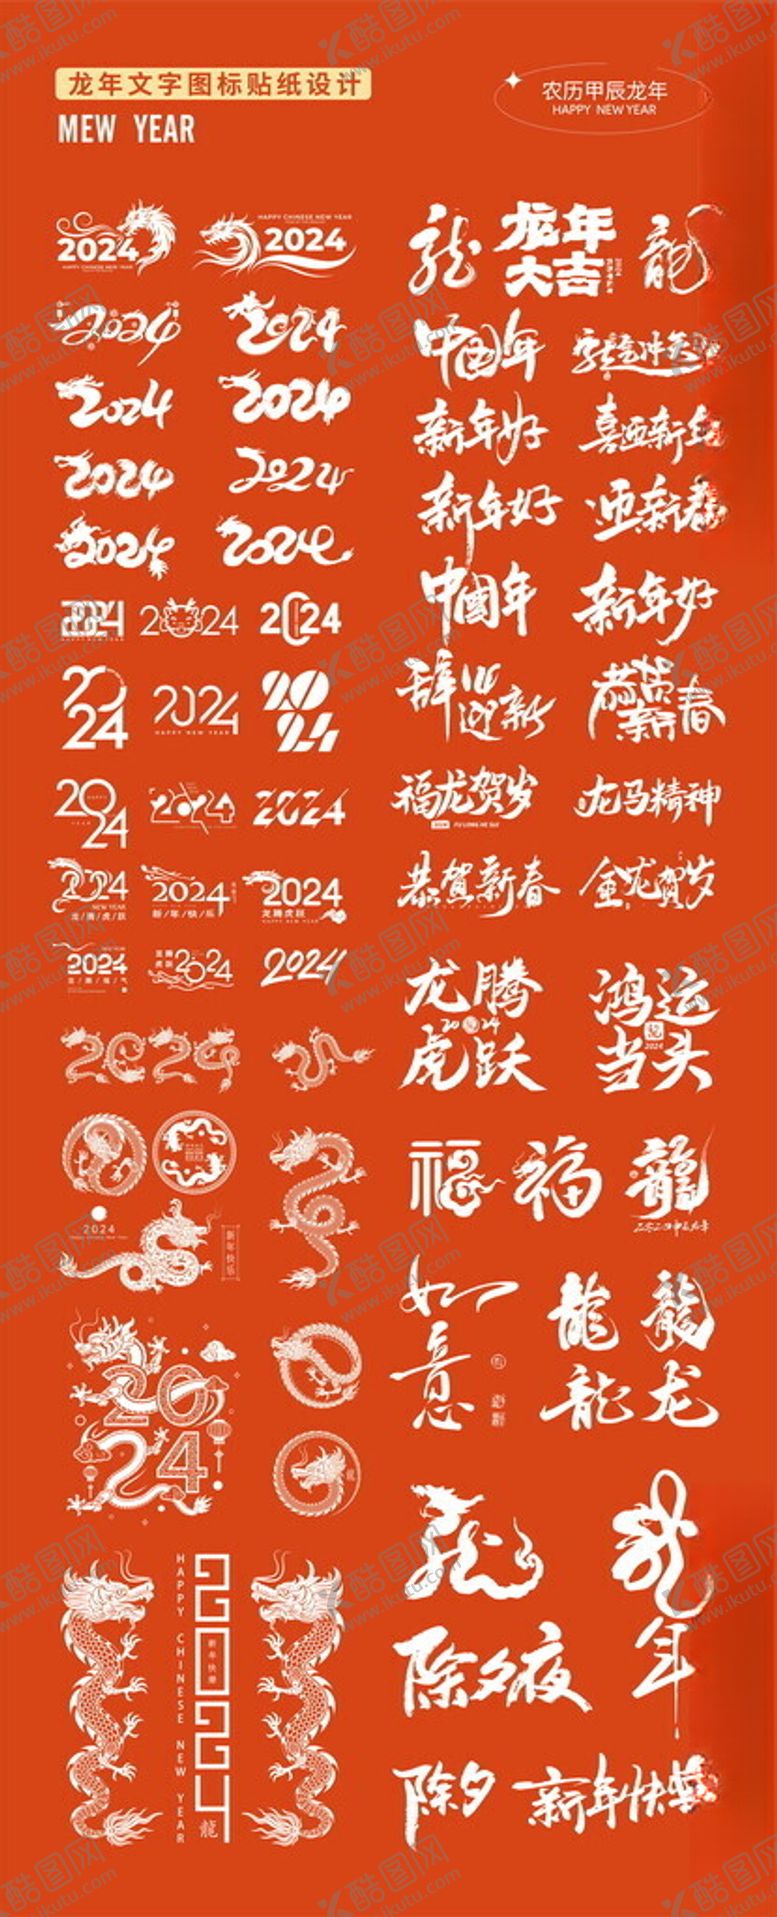 龙年文字图标贴纸设计
MEW YEAR
农历甲辰龙年
HAPPY NEW YEAR
2024
HAPPY CHINESE NEW YEAR
HAPPY CHINESE NEW YEAR
2024
2024
2024
2024
2024
2024
2024
2024
2024
2024
2024
2024
2024
2024
HAPPY NEW YEAR
2024
2024
HAPPY
YEAR
2024
2024
2024
NEW YEAR
龙/腾/虎/跃
2024
新/年/快/乐
2024
龙腾虎跃
HAPPY NEW YEAR
2024
2024
2024
2024
2024
新年快乐
2024
龍
HAPPY CHINESE NEW YEAR
2024
新年快樂
龍
龙
龙年
大吉
龍
中国年
新年好
喜迎新年
新年好
迎新春
中國年
新年好
辞旧迎新
恭贺新春
福龙贺岁
FU LONG HE SUI
龙马精神
恭贺新春
金龙贺岁
龙腾
2024
虎跃
鸿运
龍
2024
当头
福
福
龍
二零二四甲辰龙年
如意
龍
龍
龍
龙
龙
龙年
除夕夜
除夕
新年快樂
酷图网
www.ikutu.com